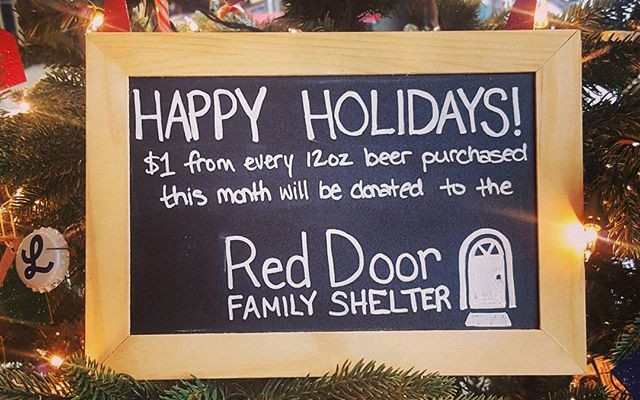 HAPPY HOLIDAYS!
$1 from every 12oz beer purchased
this month will be donated to the
Red Door
FAMILY SHELTER
L